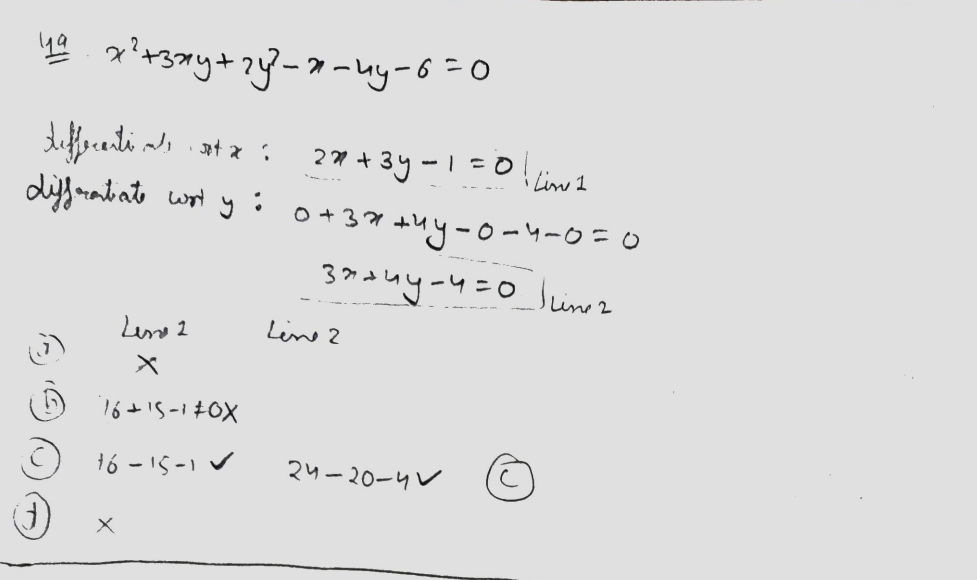 49 x²+3xy+2y²-x-4y-6=0
x : 2x+3y-1=0 | Line 1
differentiate wrt y : 0+3x+4y-0-4-0=0
3x+4y-4=0 | Line 2
Line 2 Line 2
×
(b) 16+15-1≠0×
(c) 16-15-1 ✓ 24-20-4 ✓ (c)
×